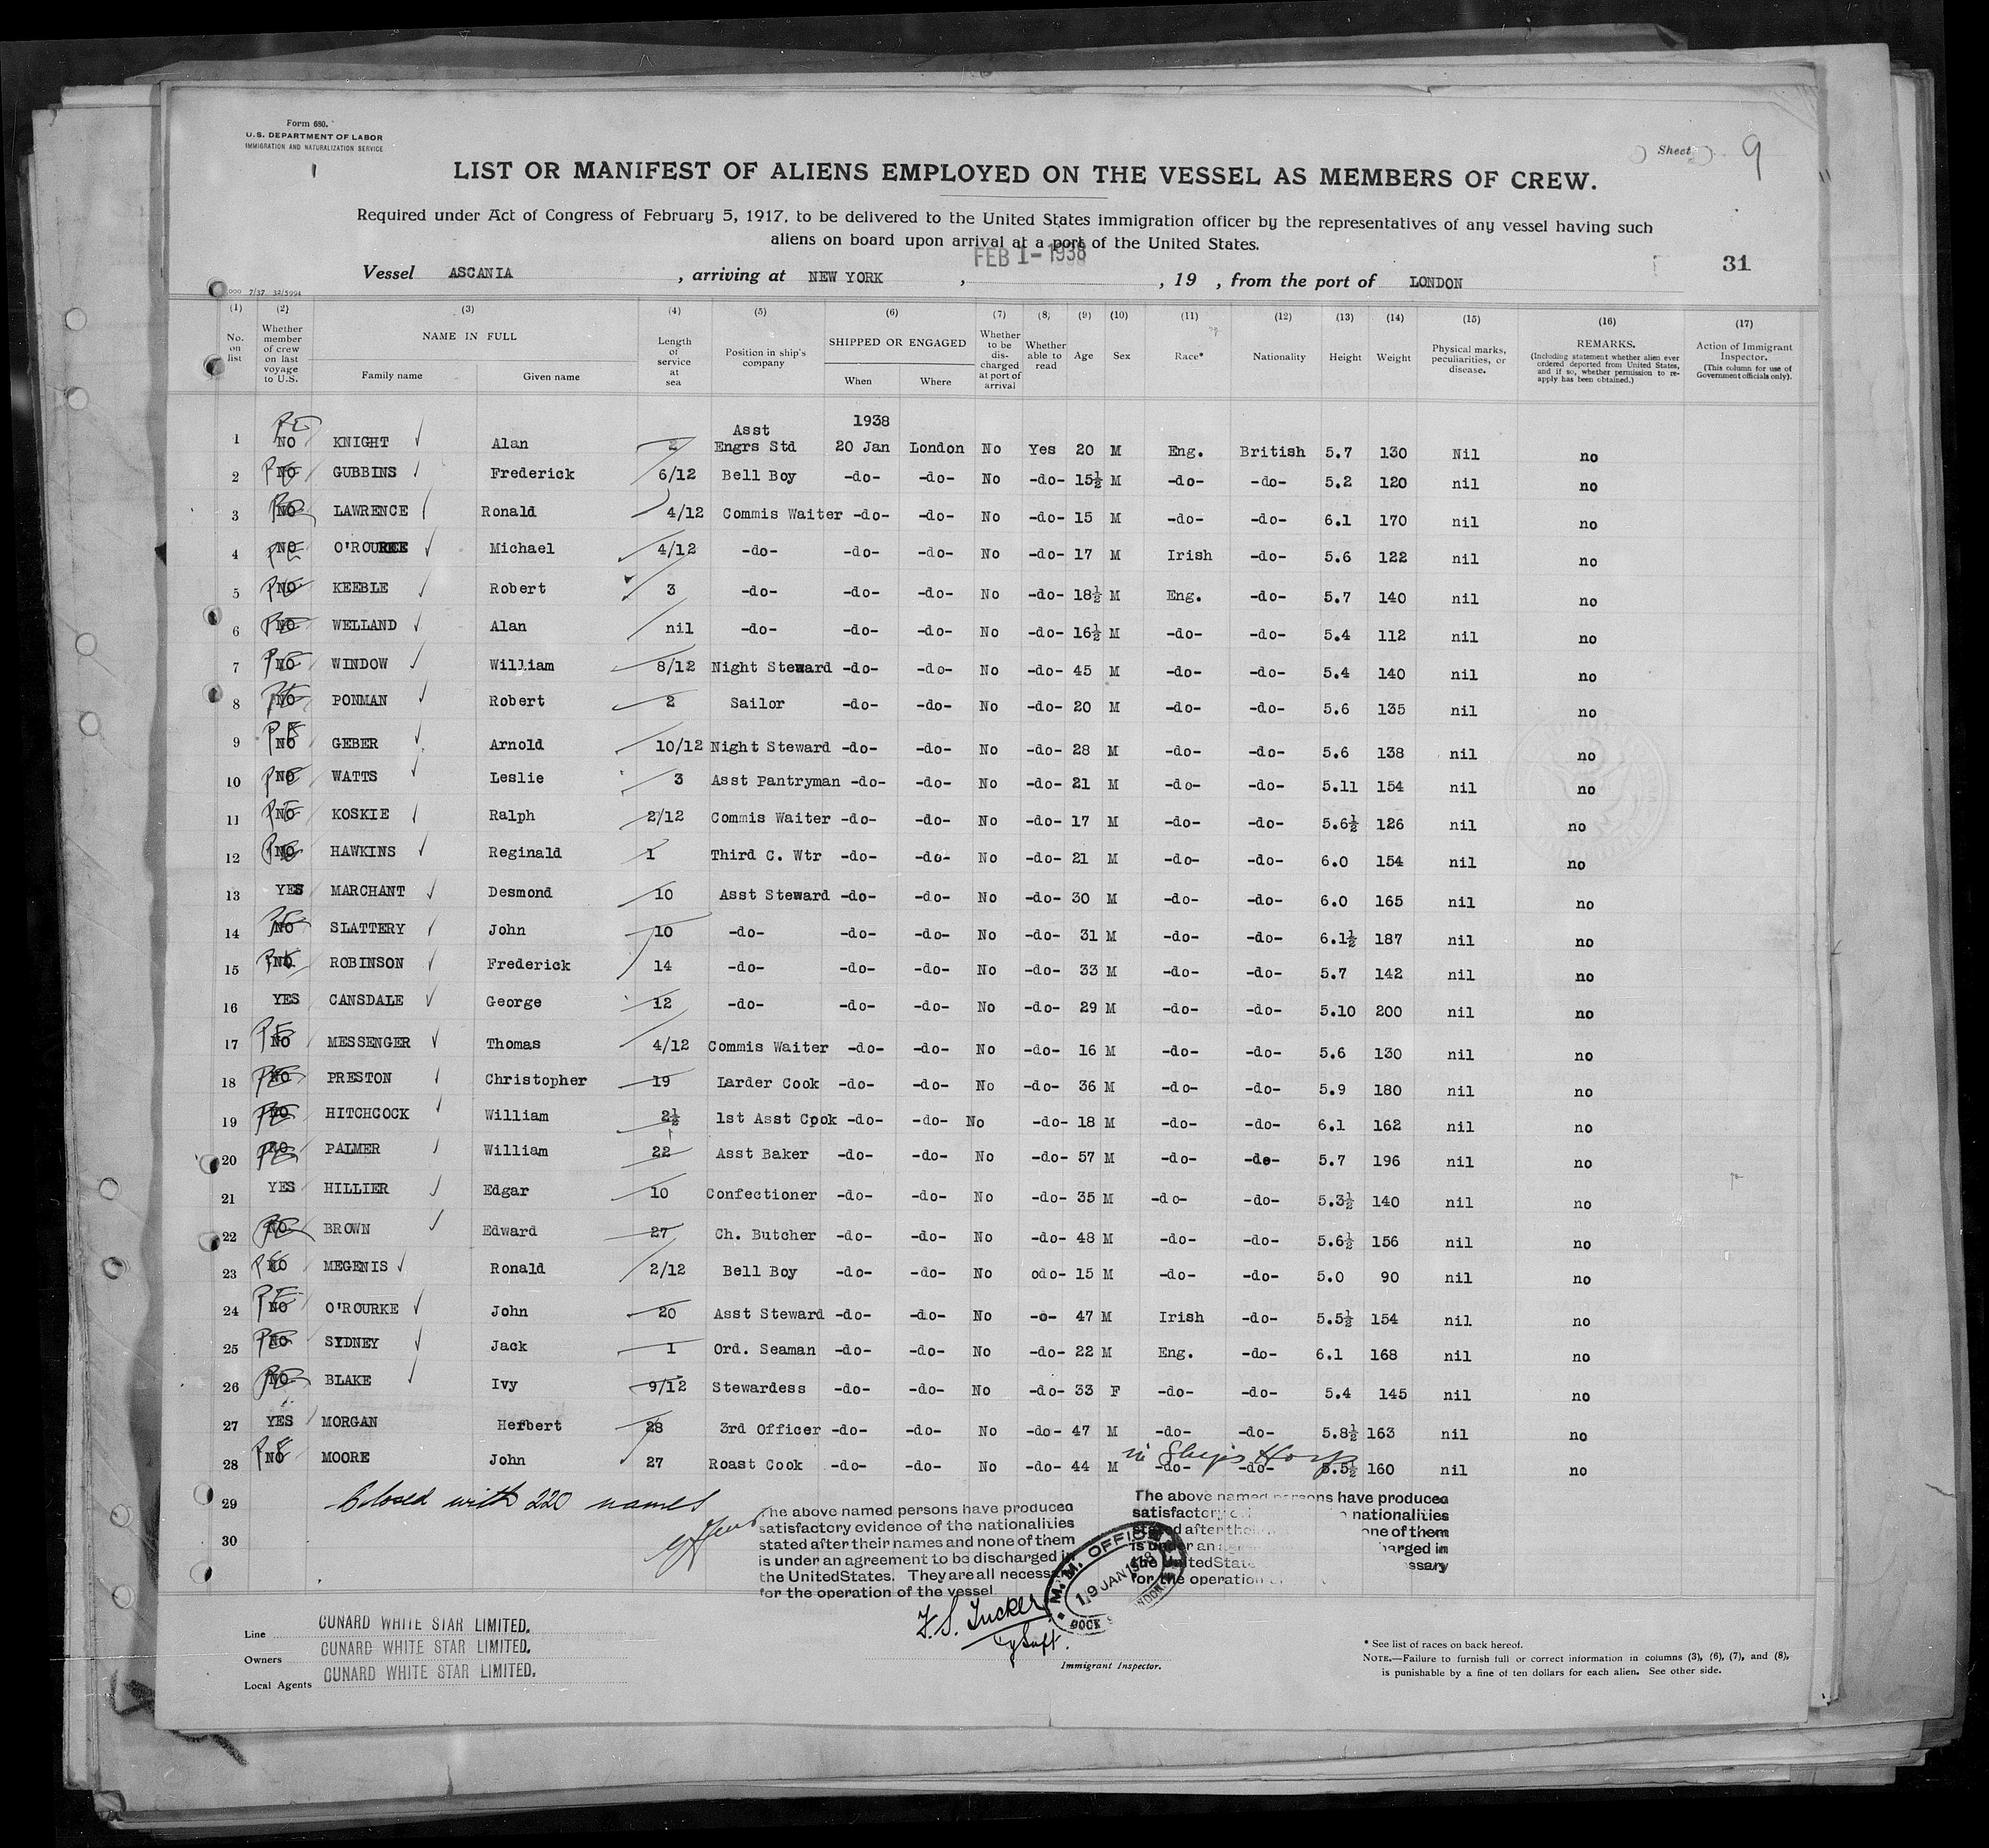 Form 680.
U.S. DEPARTMENT OF LABOR
IMMIGRATION AND NATURALIZATION SERVICE
Sheet 9
LIST OR MANIFEST OF ALIENS EMPLOYED ON THE VESSEL AS MEMBERS OF CREW.
Required under Act of Congress of February 5, 1917, to be delivered to the United States immigration officer by the representatives of any vessel having such
aliens on board upon arrival at a port of the United States.
FEB 1-1938
31
Vessel ASCANIA , arriving at NEW YORK , , 19 , from the port of LONDON
000 7/37 32/5994
(1) (2) (3) (4) (5) (6) (7) (8) (9) (10) (11) (12) (13) (14) (15) (16) (17)
No. on list Whether member of crew on last voyage to U.S. NAME IN FULL Family name Given name Length of service at sea Position in ship's company SHIPPED OR ENGAGED When Where Whether to be discharged at port of arrival Whether able to read Age Sex Race* Nationality Height Weight Physical marks, peculiarities, or disease. REMARKS. (Including statement whether alien ever ordered deported from United States, and if so, whether permission to reapply has been obtained.) Action of Immigrant Inspector. (This column for use of Government officials only).
1938
1 NO KNIGHT Alan 2 Asst Engrs Std 20 Jan London No Yes 20 M Eng. British 5.7 130 Nil no
2 NO GUBBINS Frederick 6/12 Bell Boy -do- -do- No -do- 15½ M -do- -do- 5.2 120 nil no
3 NO LAWRENCE Ronald 4/12 Commis Waiter -do- -do- No -do- 15 M -do- -do- 6.1 170 nil no
4 NO O'ROURKE Michael 4/12 -do- -do- -do- No -do- 17 M Irish -do- 5.6 122 nil no
5 NO KEEBLE Robert 3 -do- -do- -do- No -do- 18½ M Eng. -do- 5.7 140 nil no
6 NO WELLAND Alan nil -do- -do- -do- No -do- 16½ M -do- -do- 5.4 112 nil no
7 NO WINDOW William 8/12 Night Steward -do- -do- No -do- 45 M -do- -do- 5.4 140 nil no
8 NO PONMAN Robert 2 Sailor -do- -do- No -do- 20 M -do- -do- 5.6 135 nil no
9 NO GEBER Arnold 10/12 Night Steward -do- -do- No -do- 28 M -do- -do- 5.6 138 nil no
10 NO WATTS Leslie 3 Asst Pantryman -do- -do- No -do- 21 M -do- -do- 5.11 154 nil no
11 NO KOSKIE Ralph 2/12 Commis Waiter -do- -do- No -do- 17 M -do- -do- 5.6½ 126 nil no
12 NO HAWKINS Reginald 1 Third C. Wtr -do- -do- No -do- 21 M -do- -do- 6.0 154 nil no
13 YES MARCHANT Desmond 10 Asst Steward -do- -do- No -do- 30 M -do- -do- 6.0 165 nil no
14 NO SLATTERY John 10 -do- -do- -do- No -do- 31 M -do- -do- 6.1½ 187 nil no
15 NO ROBINSON Frederick 14 -do- -do- -do- No -do- 33 M -do- -do- 5.7 142 nil no
16 YES CANSDALE George 12 -do- -do- -do- No -do- 29 M -do- -do- 5.10 200 nil no
17 NO MESSENGER Thomas 4/12 Commis Waiter -do- -do- No -do- 16 M -do- -do- 5.6 130 nil no
18 NO PRESTON Christopher 19 Larder Cook -do- -do- No -do- 36 M -do- -do- 5.9 180 nil no
19 NO HITCHCOCK William 2½ 1st Asst Cook -do- -do- No -do- 18 M -do- -do- 6.1 162 nil no
20 NO PALMER William 22 Asst Baker -do- -do- No -do- 57 M -do- -do- 5.7 196 nil no
21 YES HILLIER Edgar 10 Confectioner -do- -do- No -do- 35 M -do- -do- 5.3½ 140 nil no
22 NO BROWN Edward 27 Ch. Butcher -do- -do- No -do- 48 M -do- -do- 5.6½ 156 nil no
23 NO MEGENIS Ronald 2/12 Bell Boy -do- -do- No odo- 15 M -do- -do- 5.0 90 nil no
24 NO O'ROURKE John 20 Asst Steward -do- -do- No -o- 47 M Irish -do- 5.5½ 154 nil no
25 NO SYDNEY Jack 1 Ord. Seaman -do- -do- No -do- 22 M Eng. -do- 6.1 168 nil no
26 NO BLAKE Ivy 9/12 Stewardess -do- -do- No -do- 33 F -do- -do- 5.4 145 nil no
27 YES MORGAN Herbert 28 3rd Officer -do- -do- No -do- 47 M -do- -do- 5.8½ 163 nil no
28 NO MOORE John 27 Roast Cook -do- -do- No -do- 44 M -do- -do- 5.5½ 160 nil no
in Ships Hosp
29 Closed with 220 names
30
The above named persons have produced
satisfactory evidence of the nationalities
stated after their names and none of them
is under an agreement to be discharged in
the United States. They are all necessary
for the operation of the vessel
The above named persons have produced
satisfactory nationalities
stated after their one of them
is under an charged in
the United State ssary
for the operation
M.M. OFFICE
19 JAN 1938
DOCK
F. S. Tucker
Immigrant Inspector.
Line CUNARD WHITE STAR LIMITED.
Owners CUNARD WHITE STAR LIMITED.
Local Agents CUNARD WHITE STAR LIMITED.
* See list of races on back hereof.
NOTE.—Failure to furnish full or correct information in columns (3), (6), (7), and (8),
is punishable by a fine of ten dollars for each alien. See other side.